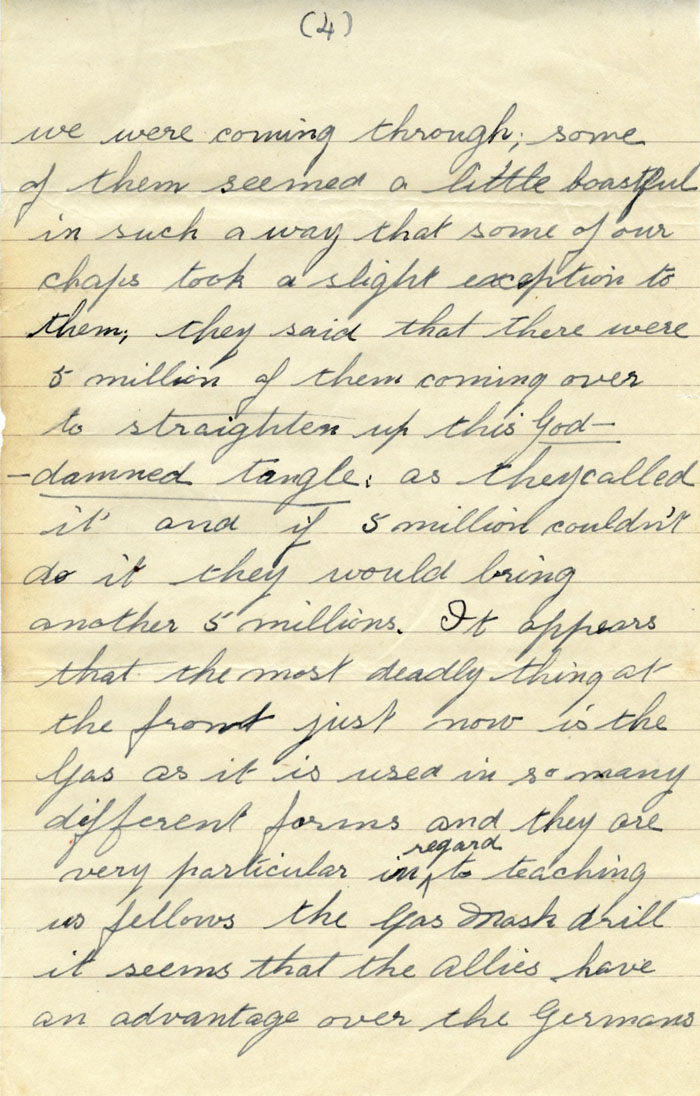 (4)
we were coming through; some
of them seemed a little boastful
in such a way that some of our
chaps took a slight exception to
them; they said that there were
5 million of them coming over
to straighten up this God-
-damned tangle; as they called
it and if 5 million couldn't
do it they would bring
another 5 millions. It appears
that the most deadly thing at
the front just now is the
Gas as it is used in so many
different forms and they are
very particular in regard to teaching
us fellows the Gas Mask drill
it seems that the Allies have
an advantage over the Germans